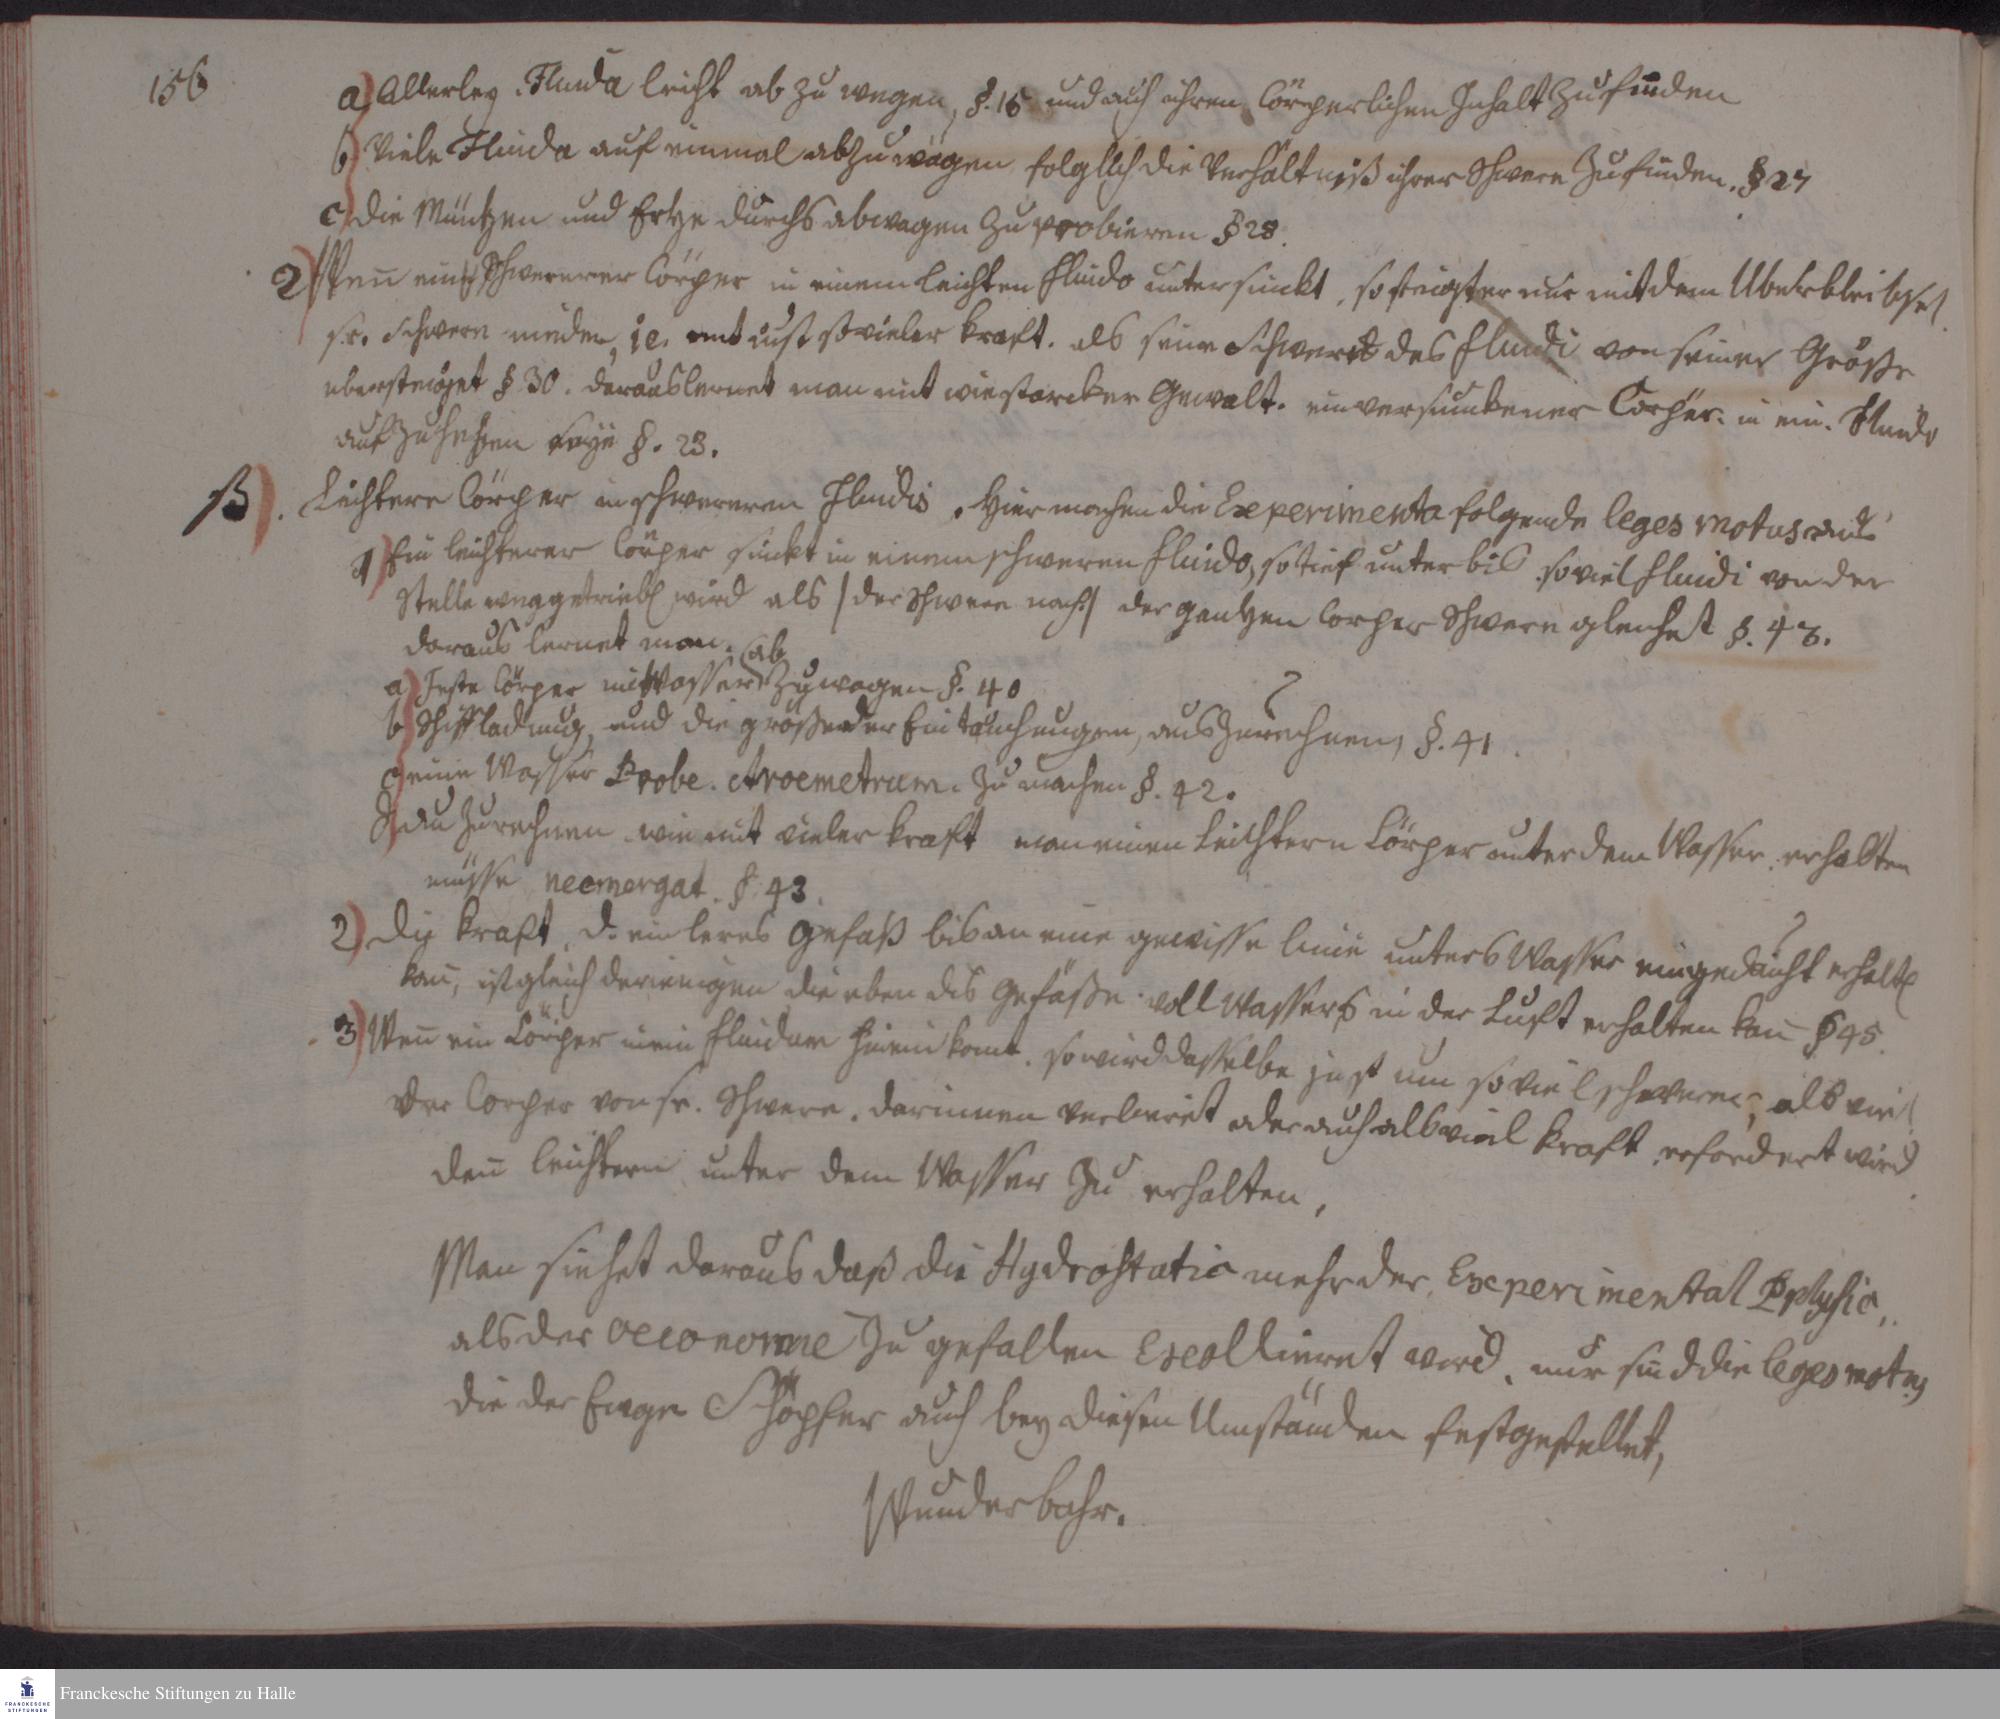 156
a) Allerley Fluida leicht ab zu wegen, §. 16 und auch ihren Cörperlichen Inhalt zu finden
b) Viele Fluida auf einmal abzuwägen folglich die Verhältniß ihrer Schwere zu finden. § 27
c) die Müntzen und Ertze durchs abwagen zu probieren § 28.
2) Wen̄ ein Schwererer Cörper in einem leichten fluido untersinckt, so steiget er nur mit dem Uberbleibsel
sr. Schwere nieder, i.e. mit iust so vieler kraft. als seine Schwere des fluidi von seiner Größe
ubersteiget § 30. daraus lernet man mit wie starcker Gewalt. ein versunckener Corper. in ein. Fluido
auf zu heben seye §. 23.
ß). Leichtere Cörper in schwereren Fluidis. Hier machen die Experimenta folgende leges motus aus
1) Ein leichterer Cörper sinckt in einem schweren fluido, so tief unter bis so viel fluidi von der
Stelle weggetrieb[en] wird als /der Schwere nach/ der gantzen Corper Schwere gleichet §. 48.
daraus lernet man.
a) Feste Cörper mit Wasser ab Zu wagen §. 40
b) Schiffladung, und die größe der Eintauchungen, auszurechnen, §. 41.
c) eine Wasser Probe. Aroemetrum. Zu machen §. 42.
d) au Zurechnen wie mit vieler kraft man einen Leichtern Cörper unter dem Wasser erhalten
müsse ne emergat. §. 43.
2) Die kraft, d. ein leeres Gefäß bis an eine gewisse linie unters Wasser eingedaucht erhalt[en]
kan̄, ist gleich derienigen die eben dis Gefäße voll Wassers in der Luft erhalten kan̄ § 45.
3) Wen̄ ein Cörper in ein fluidum hinein komt. so wird dasselbe just um so viel schwerer, als viel
der Corper von sr. Schwere. darinnen verlieret oder auch als viel kraft erfordert wird
den̄ leichtern unter dem Wasser zu erhalten,
Man siehet daraus daß die Hydrostatic mehr der Experimental Physic,
als der oeconomie zu gefallen Excolieret wird, nur sind die leges motus
die der Ewge Schöpfer auch bey diesen Umständen festgestellet,
Wunderbahr.
Franckesche Stiftungen zu Halle
FRANCKESCHE
STIFTUNGEN